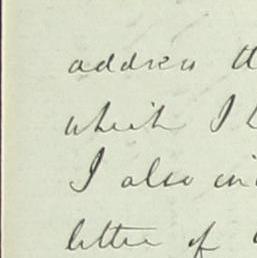 address
which I
I also
letter of